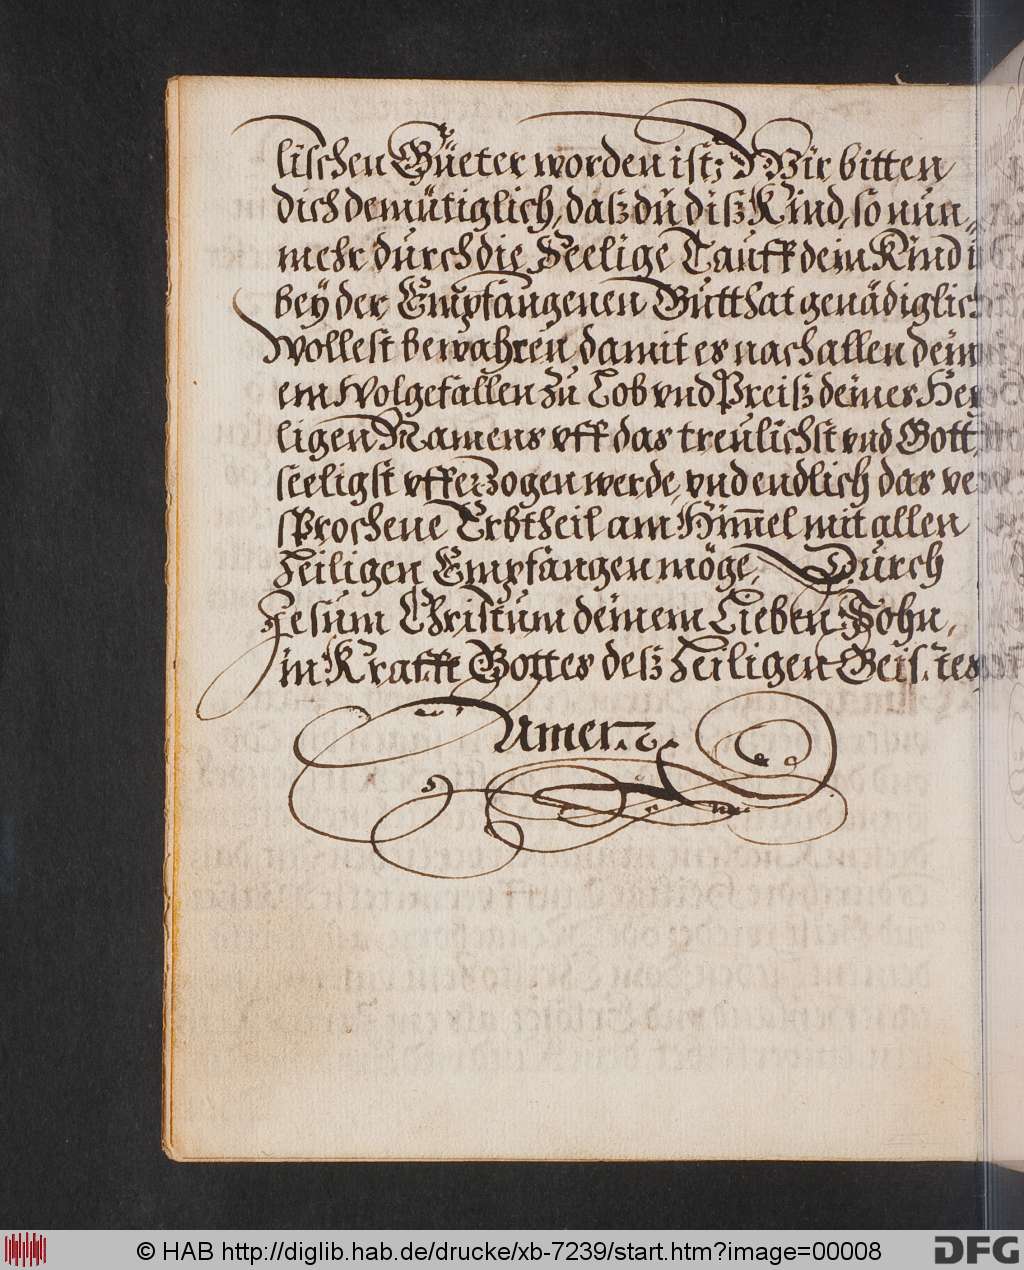 lischen Güeter worden ist; Wir bitten
dich demütiglich, dasz dū disz Kind, so nūn
mehr dūrch die Seelige Tauff dein Kind
beÿ der Empfangenen Gūtthat genädiglich
Wollest bewahren, damit es nach allen dein
em Wolgefallen zū Lob vnd Preisz deines Hei
ligen Namens vff das treūlichst vnd Gott
seeligst vfferzogen werde, vnd endlich das ver
sprochene Erbtheil am Him̄el mit allen
Heiligen Empfangen möge, Dūrch
Jesūm Christūm deinem Lieben Sohn,
in Krafft Gottes desz Heiligen Geistes
Amen.
© HAB http://diglib.hab.de/drucke/xb-7239/start.htm?image=00008
DFG